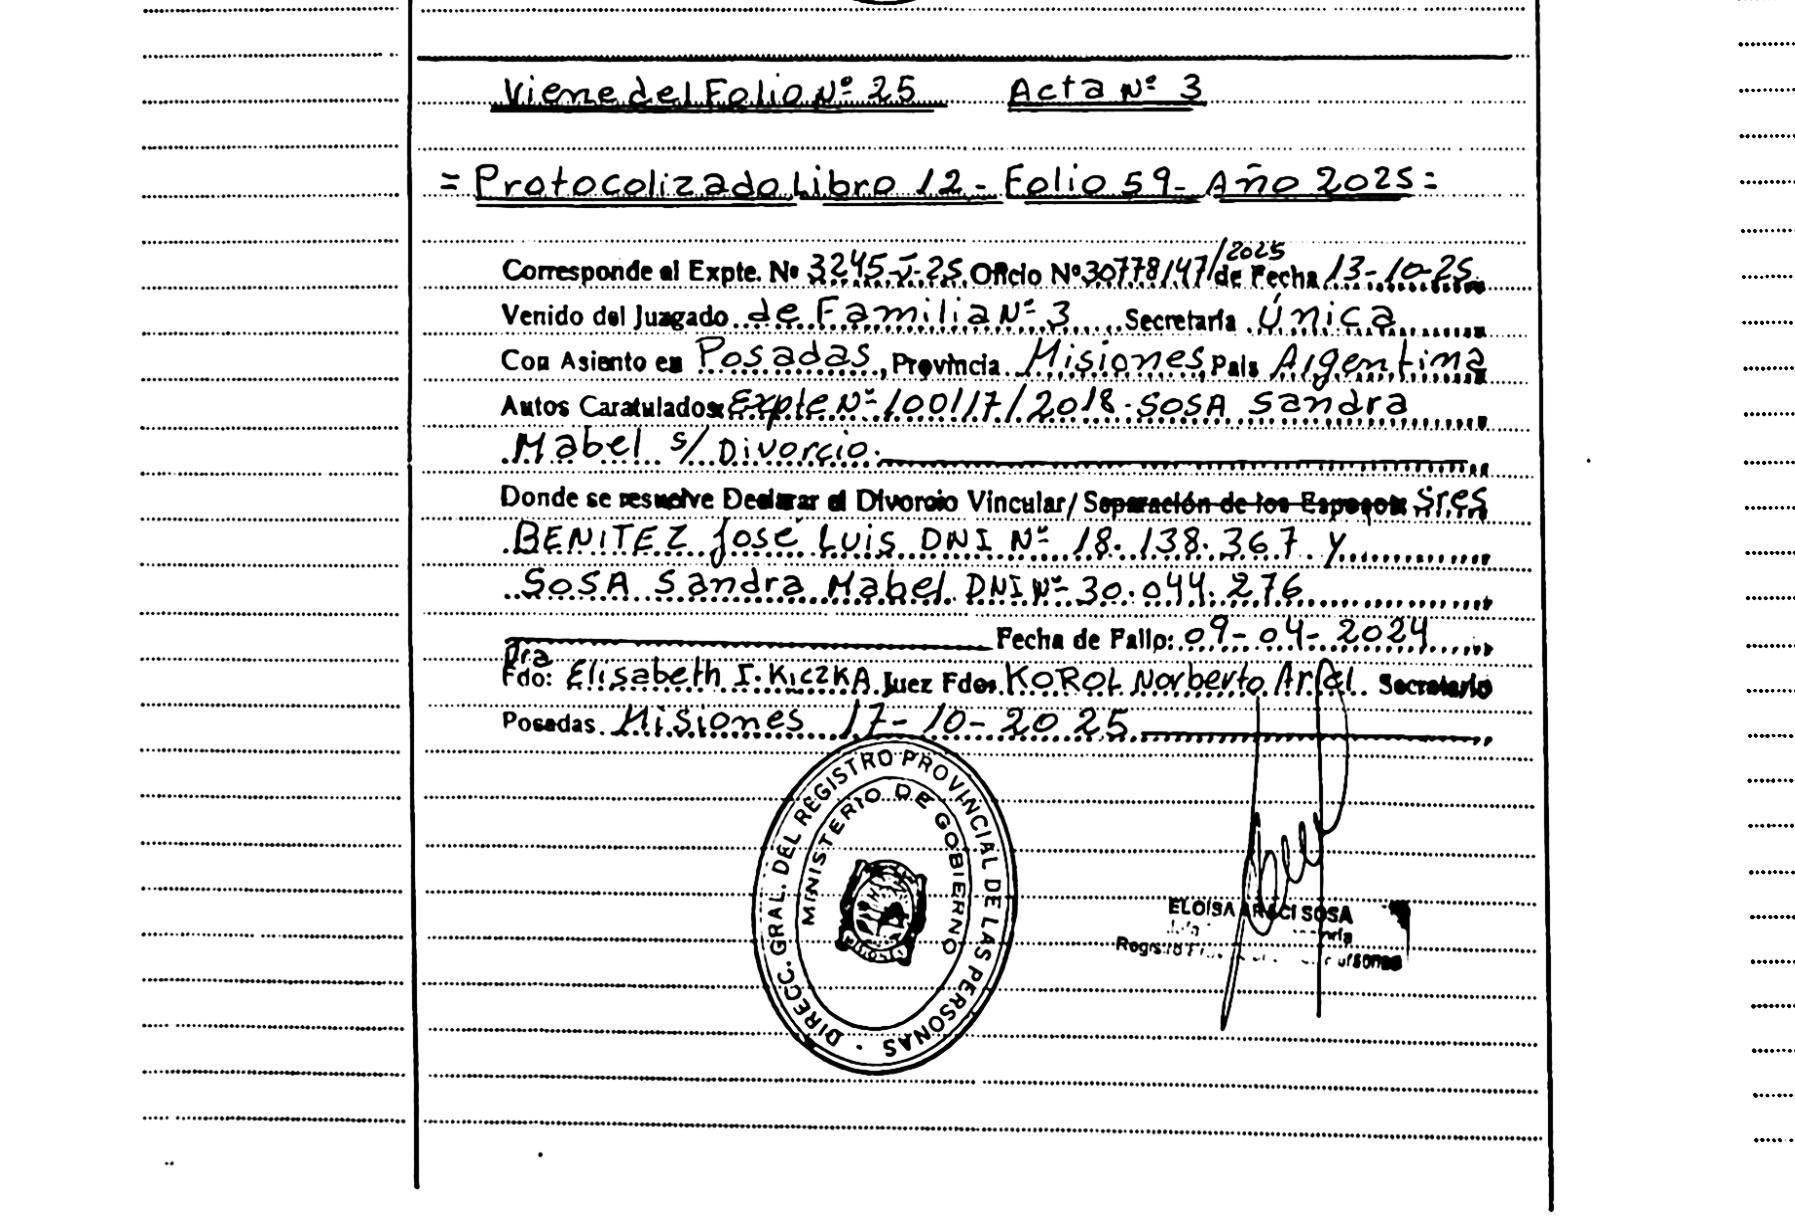 Viene del Folio Nº 25 Acta Nº 3
= Protocolizado Libro 12 - Folio 59 - Año 2025 =
Corresponde al Expte. Nº 3245-J-25 Oficio Nº 30778/47/2025 de Fecha 13-10-25
Venido del Juzgado de Familia Nº 3 Secretaría Única
Con Asiento en Posadas, Provincia Misiones País Argentina
Autos Caratulados: Expte Nº 100117/2018. SOSA Sandra
Mabel s/ Divorcio.
Donde se resuelve Declarar el Divorcio Vincular/ Separación de los Esposos: Sres
BENITEZ José Luis DNI Nº 18.138.367 y
SOSA Sandra Mabel DNI Nº 30.044.276
Fecha de Fallo: 09-04-2024
Dra
Fdo: Elisabeth I. KICZKA Juez Fdo: KOROL Norberto Secretario
Posadas Misiones 17-10-2025
DIRECC. GRAL. DEL REGISTRO PROVINCIAL DE LAS PERSONAS
MINISTERIO DE GOBIERNO
ELOISA ARACI SOSA